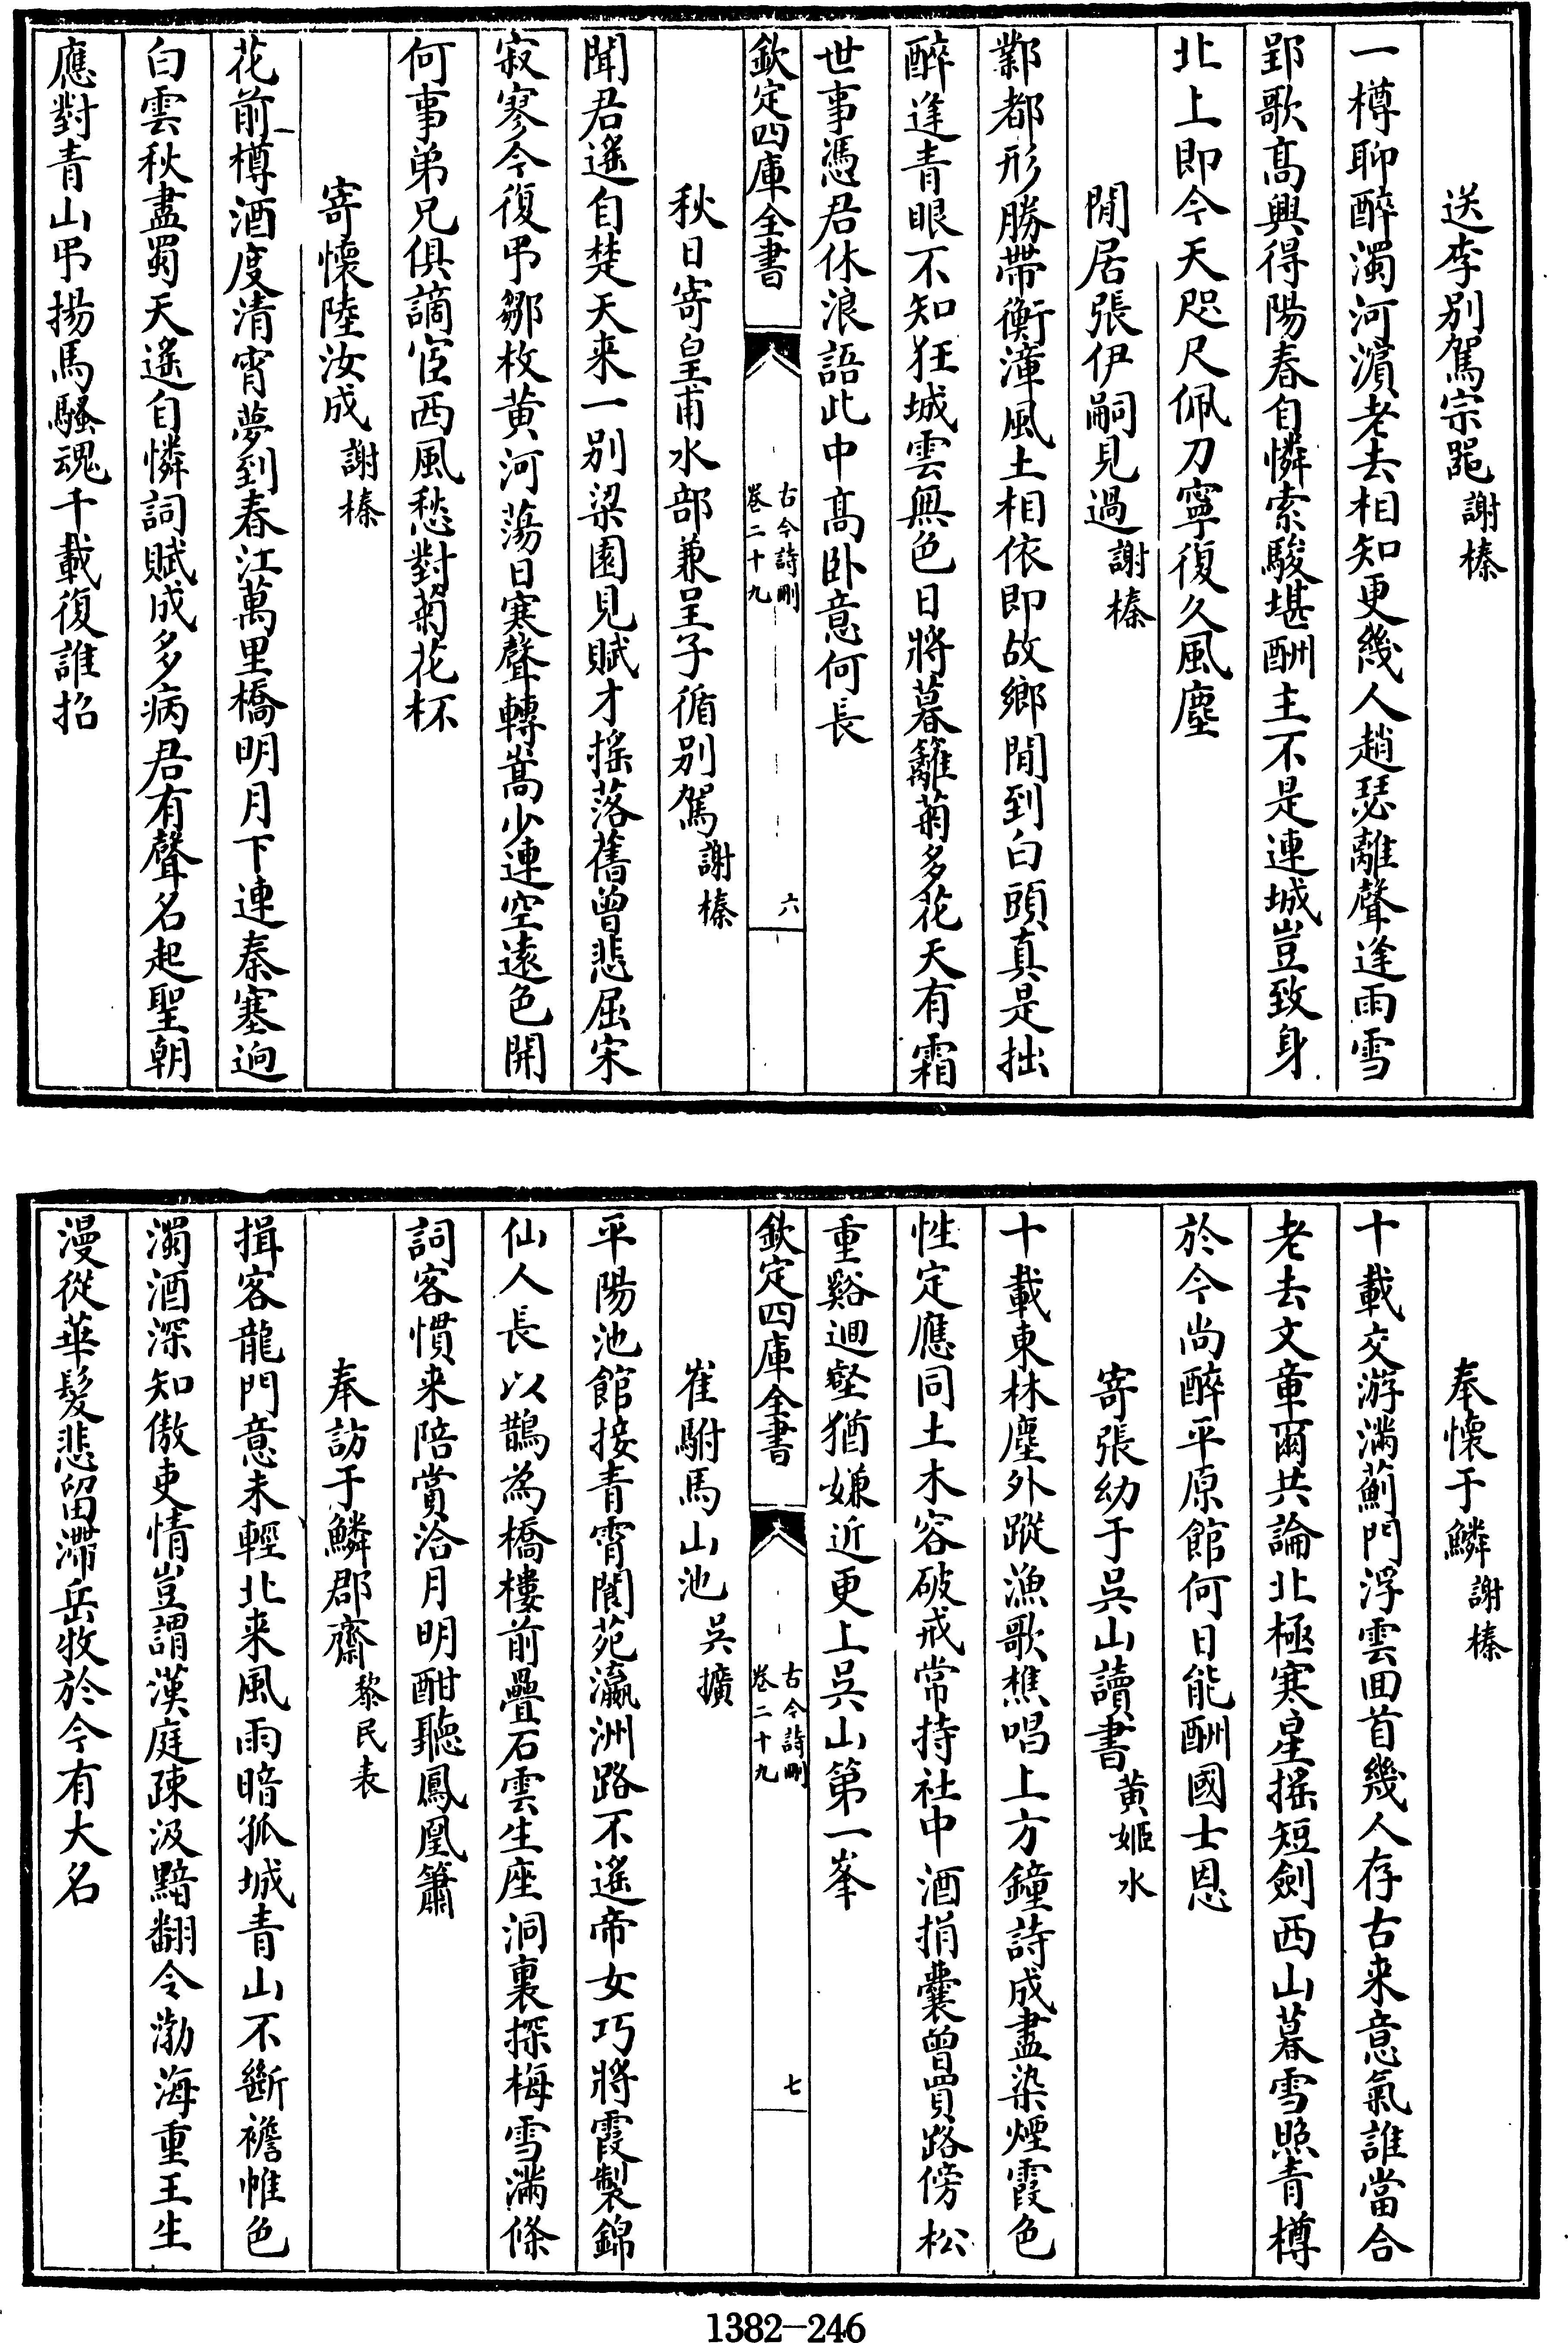 送李別駕宗器謝榛
一樽聊醉濁河濵老去相知更幾人趙瑟離聲逢雨雪
郢歌髙興得陽春自憐索駿堪酬主不是連城豈致身
北上即今天咫尺佩刀寧復久風塵
閒居張伊嗣見過謝榛
鄴都形勝帶衡漳風土相依即故鄉閒到白頭真是拙
醉逢青眼不知狂城雲無色日將暮籬菊多花天有霜
世事憑君休浪語此中髙卧意何長
欽定四庫全書
古今詩刪
卷二十九
六
秋日寄皇甫水部兼呈子循別駕謝榛
聞君遙自楚天来一別梁園見賦才搖落舊曾悲屈宋
寂寥今復弔鄒枚黄河蕩日寒聲轉嵩少連空逺色開
何事弟兄俱謫宦西風愁對菊花杯
寄懷陸汝成謝榛
花前樽酒度清宵夢到春江萬里橋明月下連秦塞逈
白雲秋盡蜀天遙自憐詞賦成多病君有聲名起聖朝
應對青山弔揚馬騷魂千載復誰招
奉懷于鱗謝榛
十載交游滿薊門浮雲囬首幾人存古来意氣誰當合
老去文章爾共論北極寒星搖短劍西山暮雪照青樽
於今尚醉平原館何日能酬國士恩
寄張幼于吳山讀書黄姬水
十載東林塵外蹤漁歌樵唱上方鐘詩成盡染煙霞色
性定應同土木容破戒常持社中酒捐囊曽買路傍松
重谿迴壑猶嫌近更上吳山第一峯
欽定四庫全書
古今詩刪
卷二十九
七
崔駙馬山池吳擴
平陽池館接青霄閬苑瀛洲路不遙帝女巧將霞製錦
仙人長以鵲為橋樓前疊石雲生座洞裏探梅雪滿條
詞客慣来陪賞洽月明酣聽鳳凰簫
奉訪于鱗郡齋黎民表
揖客龍門意未輕北来風雨暗孤城青山不斷襜帷色
濁酒深知傲吏情豈謂漢庭疎汲黯翻令渤海重王生
漫從華髪悲留滯岳牧於今有大名
1382-246